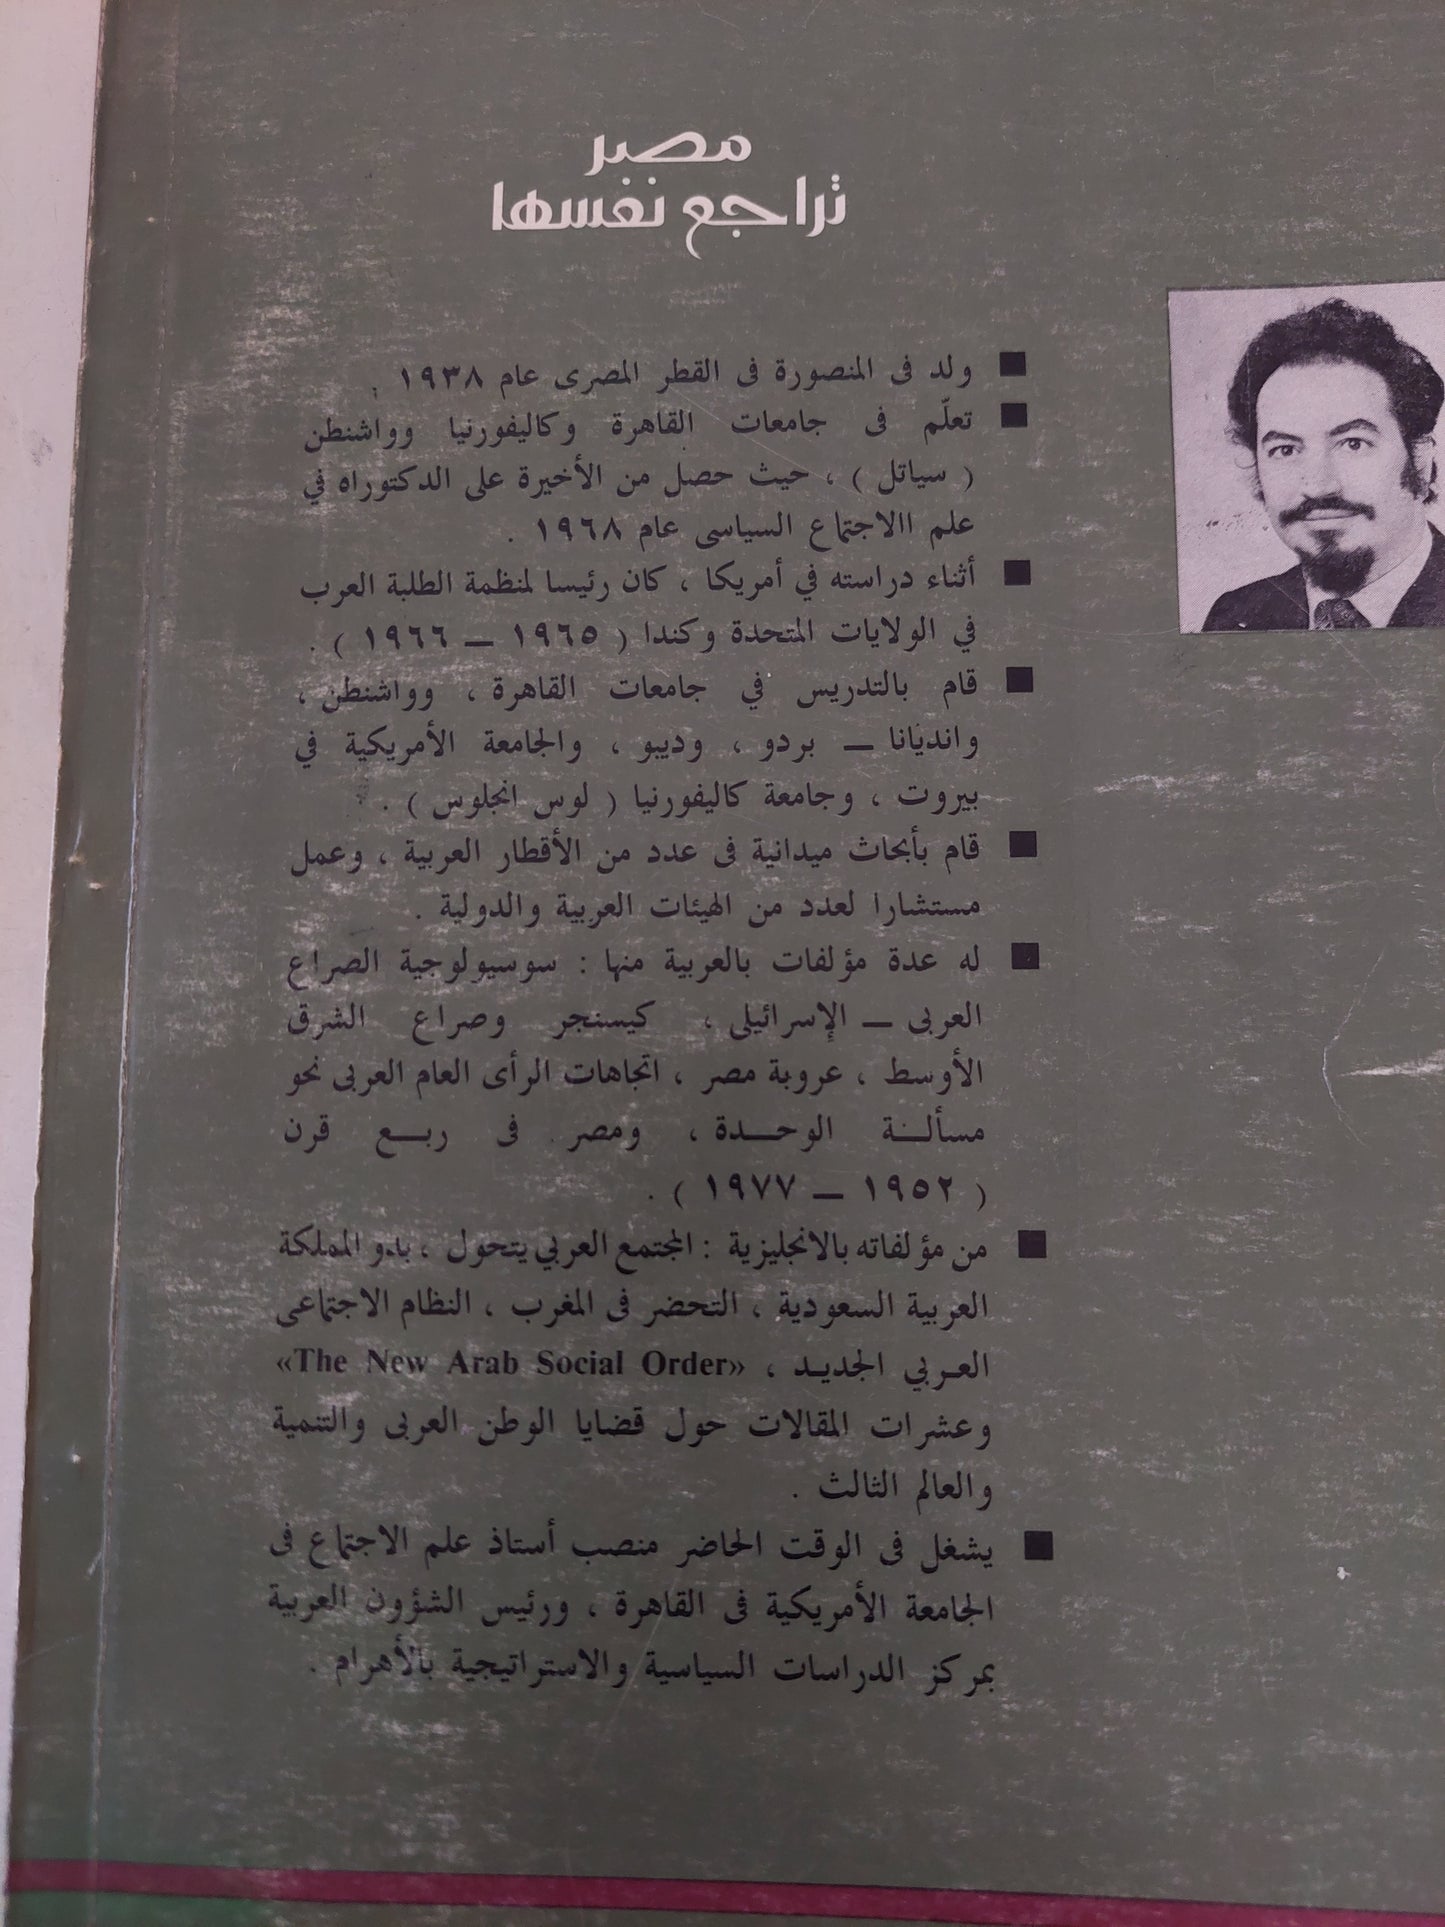 مصر
تراجع نفسها
■ ولد فى المنصورة فى القطر المصرى عام ١٩٣٨ .
■ تعلّم فى جامعات القاهرة وكاليفورنيا وواشنطن
( سياتل ) ، حيث حصل من الأخيرة على الدكتوراه في
علم االاجتماع السياسى عام ١٩٦٨ .
■ أثناء دراسته في أمريكا ، كان رئيسا لمنظمة الطلبة العرب
في الولايات المتحدة وكندا ( ١٩٦٥ — ١٩٦٦ ) .
■ قام بالتدريس في جامعات القاهرة ، وواشنطن ،
وانديانا — بردو ، وديبو ، والجامعة الأمريكية في
بيروت ، وجامعة كاليفورنيا ( لوس انجلوس ) .
■ قام بأبحاث ميدانية فى عدد من الأقطار العربية ، وعمل
مستشارا لعدد من الهيئات العربية والدولية .
■ له عدة مؤلفات بالعربية منها : سوسيولوجية الصراع
العربى — الإسرائيلى ، كيسنجر وصراع الشرق
الأوسط ، عروبة مصر ، اتجاهات الرأى العام العربى نحو
مسألـة الوحـدة ، ومصر فى ربـع قرن
( ١٩٥٢ — ١٩٧٧ ) .
■ من مؤلفاته بالانجليزية : المجتمع العربي يتحول ، بدو المملكة
العربية السعودية ، التحضر فى المغرب ، النظام الاجتماعى
العـربي الجديـد ، «The New Arab Social Order»
وعشرات المقالات حول قضايا الوطن العربى والتنمية
والعالم الثالث .
■ يشغل فى الوقت الحاضر منصب أستاذ علم الاجتماع فى
الجامعة الأمريكية فى القاهرة ، ورئيس الشؤون العربية
بمركز الدراسات السياسية والاستراتيجية بالأهرام .